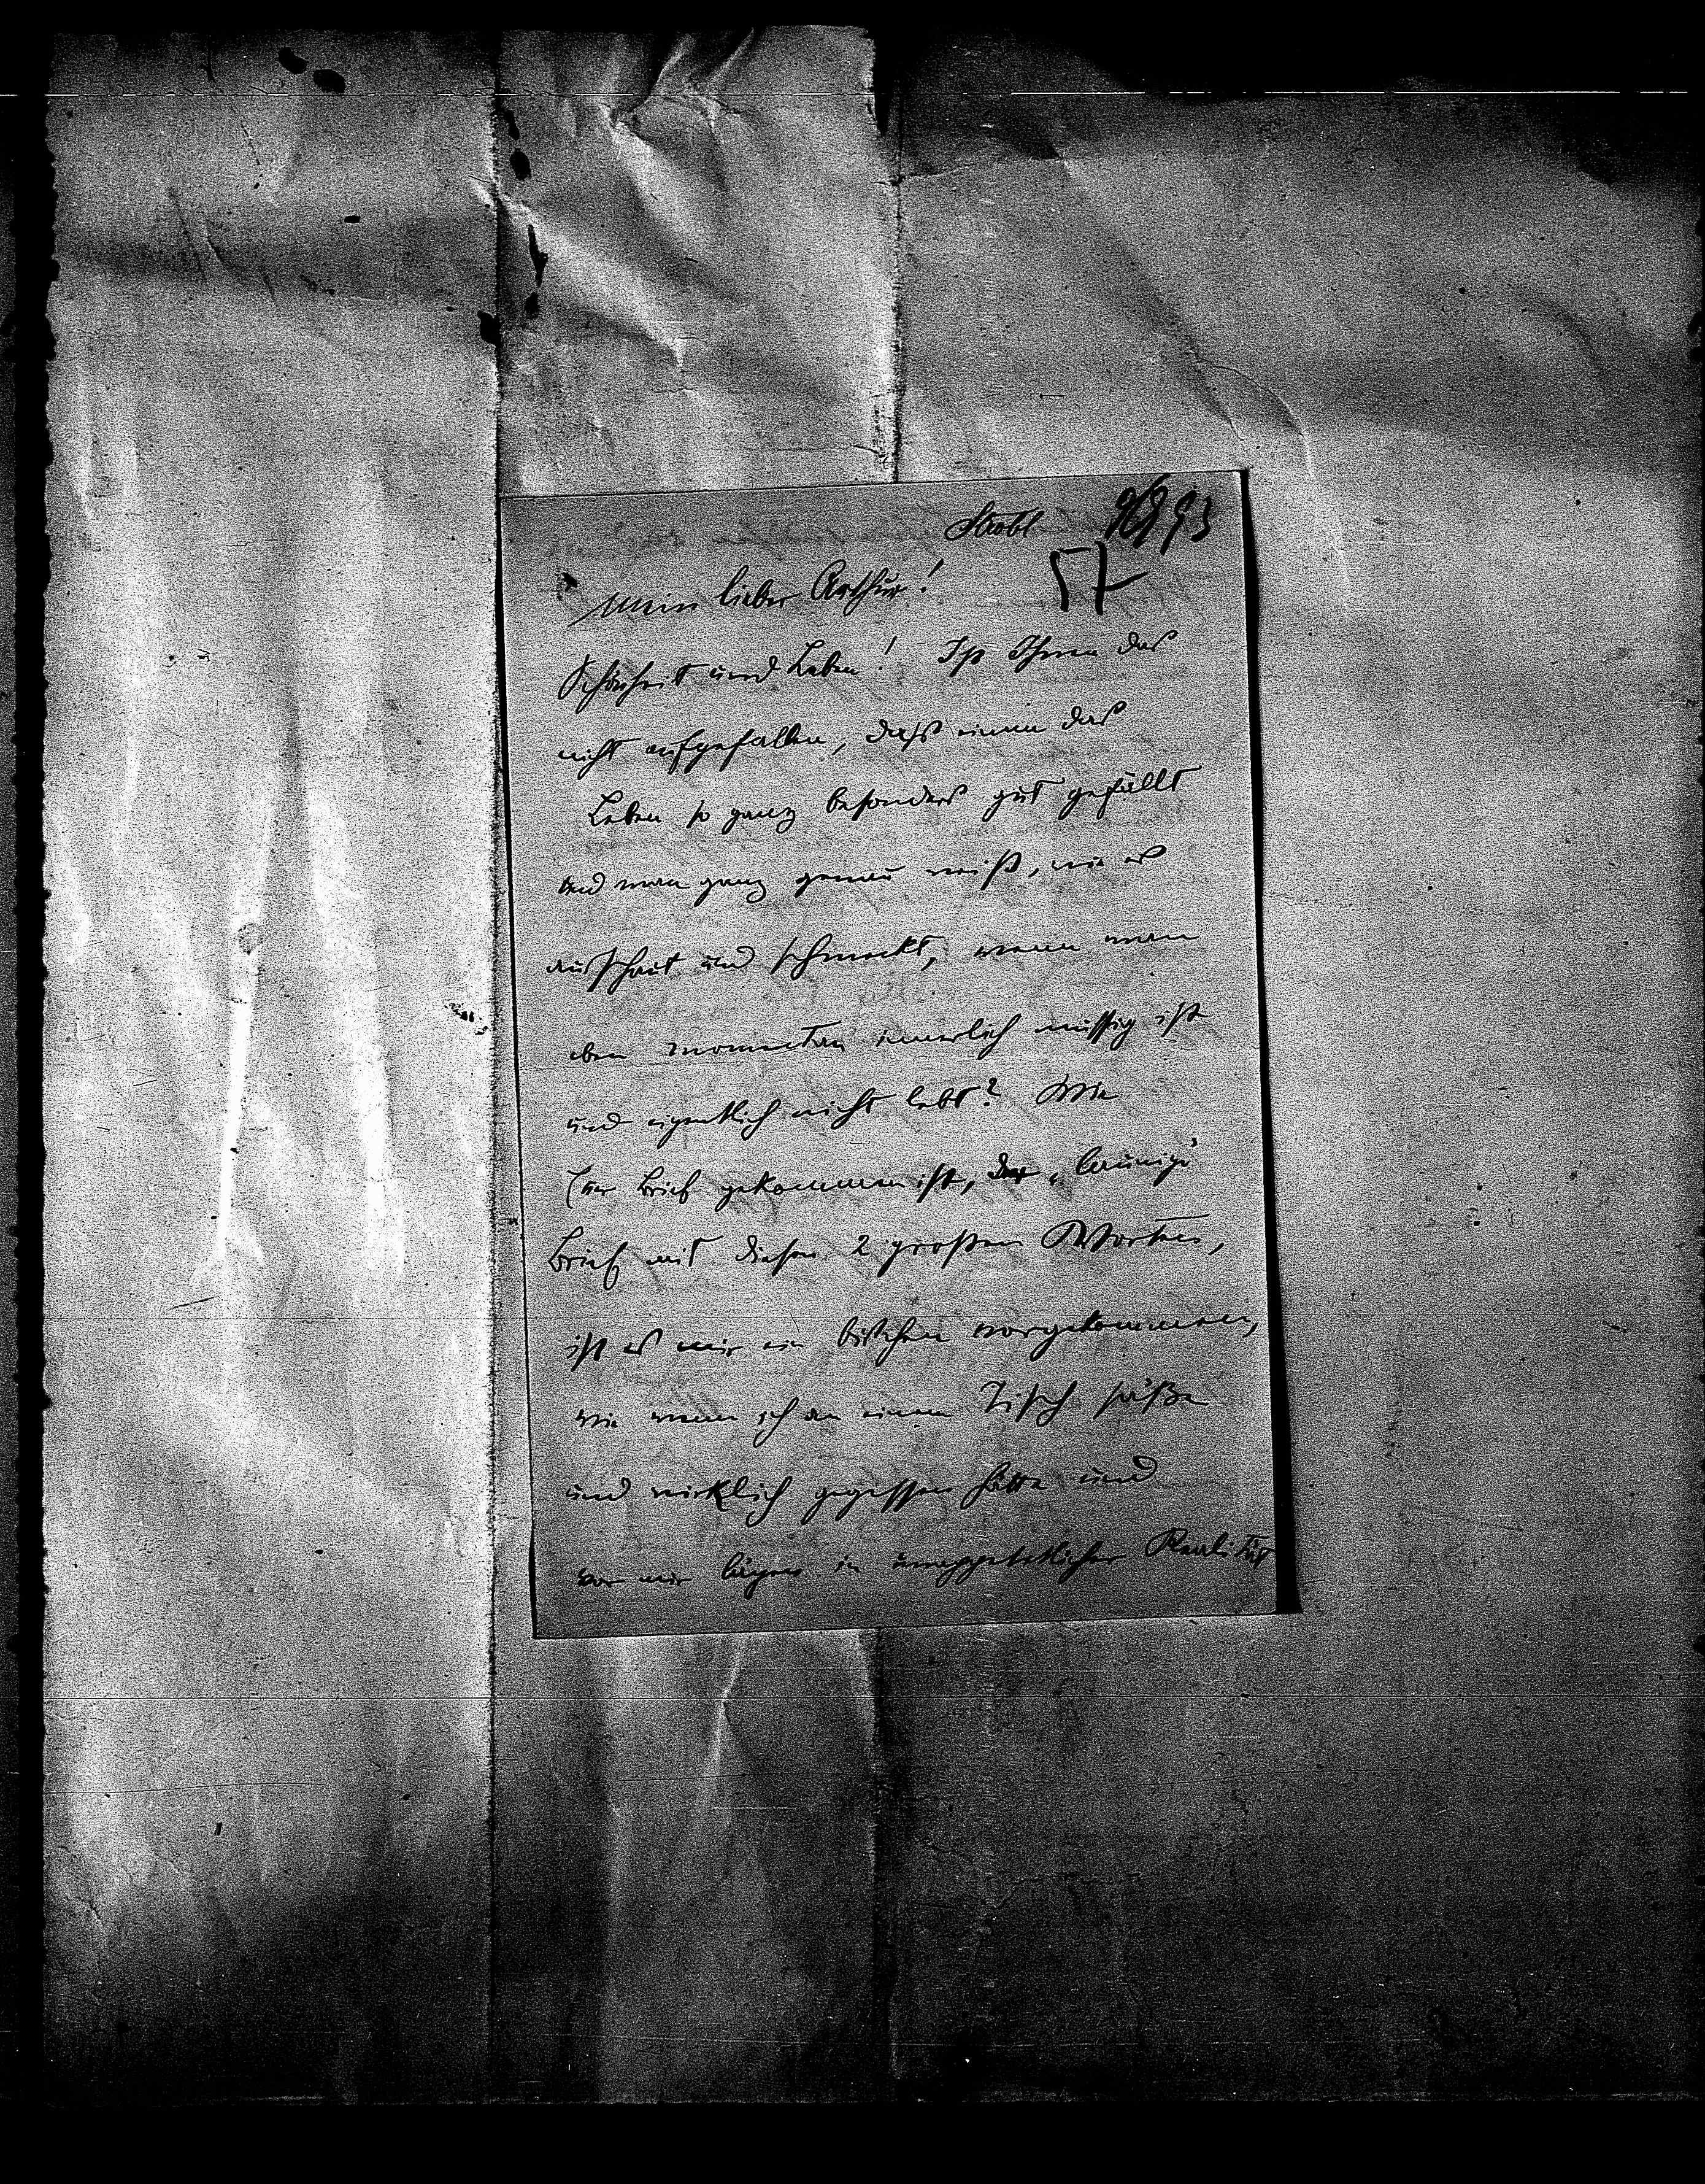 Strobl 9/8 93
57
Mein lieber Arthur!
Schönheit und Leben! Ist Ihnen das
nicht aufgefallen, dass einem das
Leben so ganz besonders gut gefällt
und man ganz genau weiß, wie es
ausschaut und schmeckt, wenn man
eben momentan innerlich müssig ist
und eigentlich nicht lebt? Wie
Ihr Brief gekommen ist, der „launige“
Brief mit diesen 2 großen Worten,
ist es mir ein bisschen vorgekommen,
wie wenn ich an einem Tisch säße
und wirklich gegessen hätte und
vor mir lägen in unappetitlicher Realität